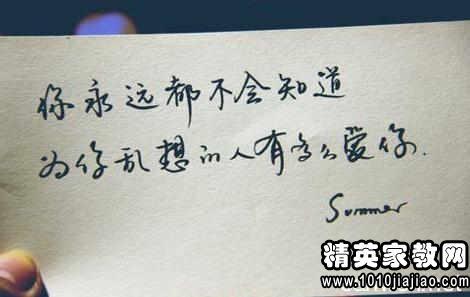 你永远都不会知道
为你乱想的人有多么爱你.
Summer
精英家教网
www.1010jiajiao.com